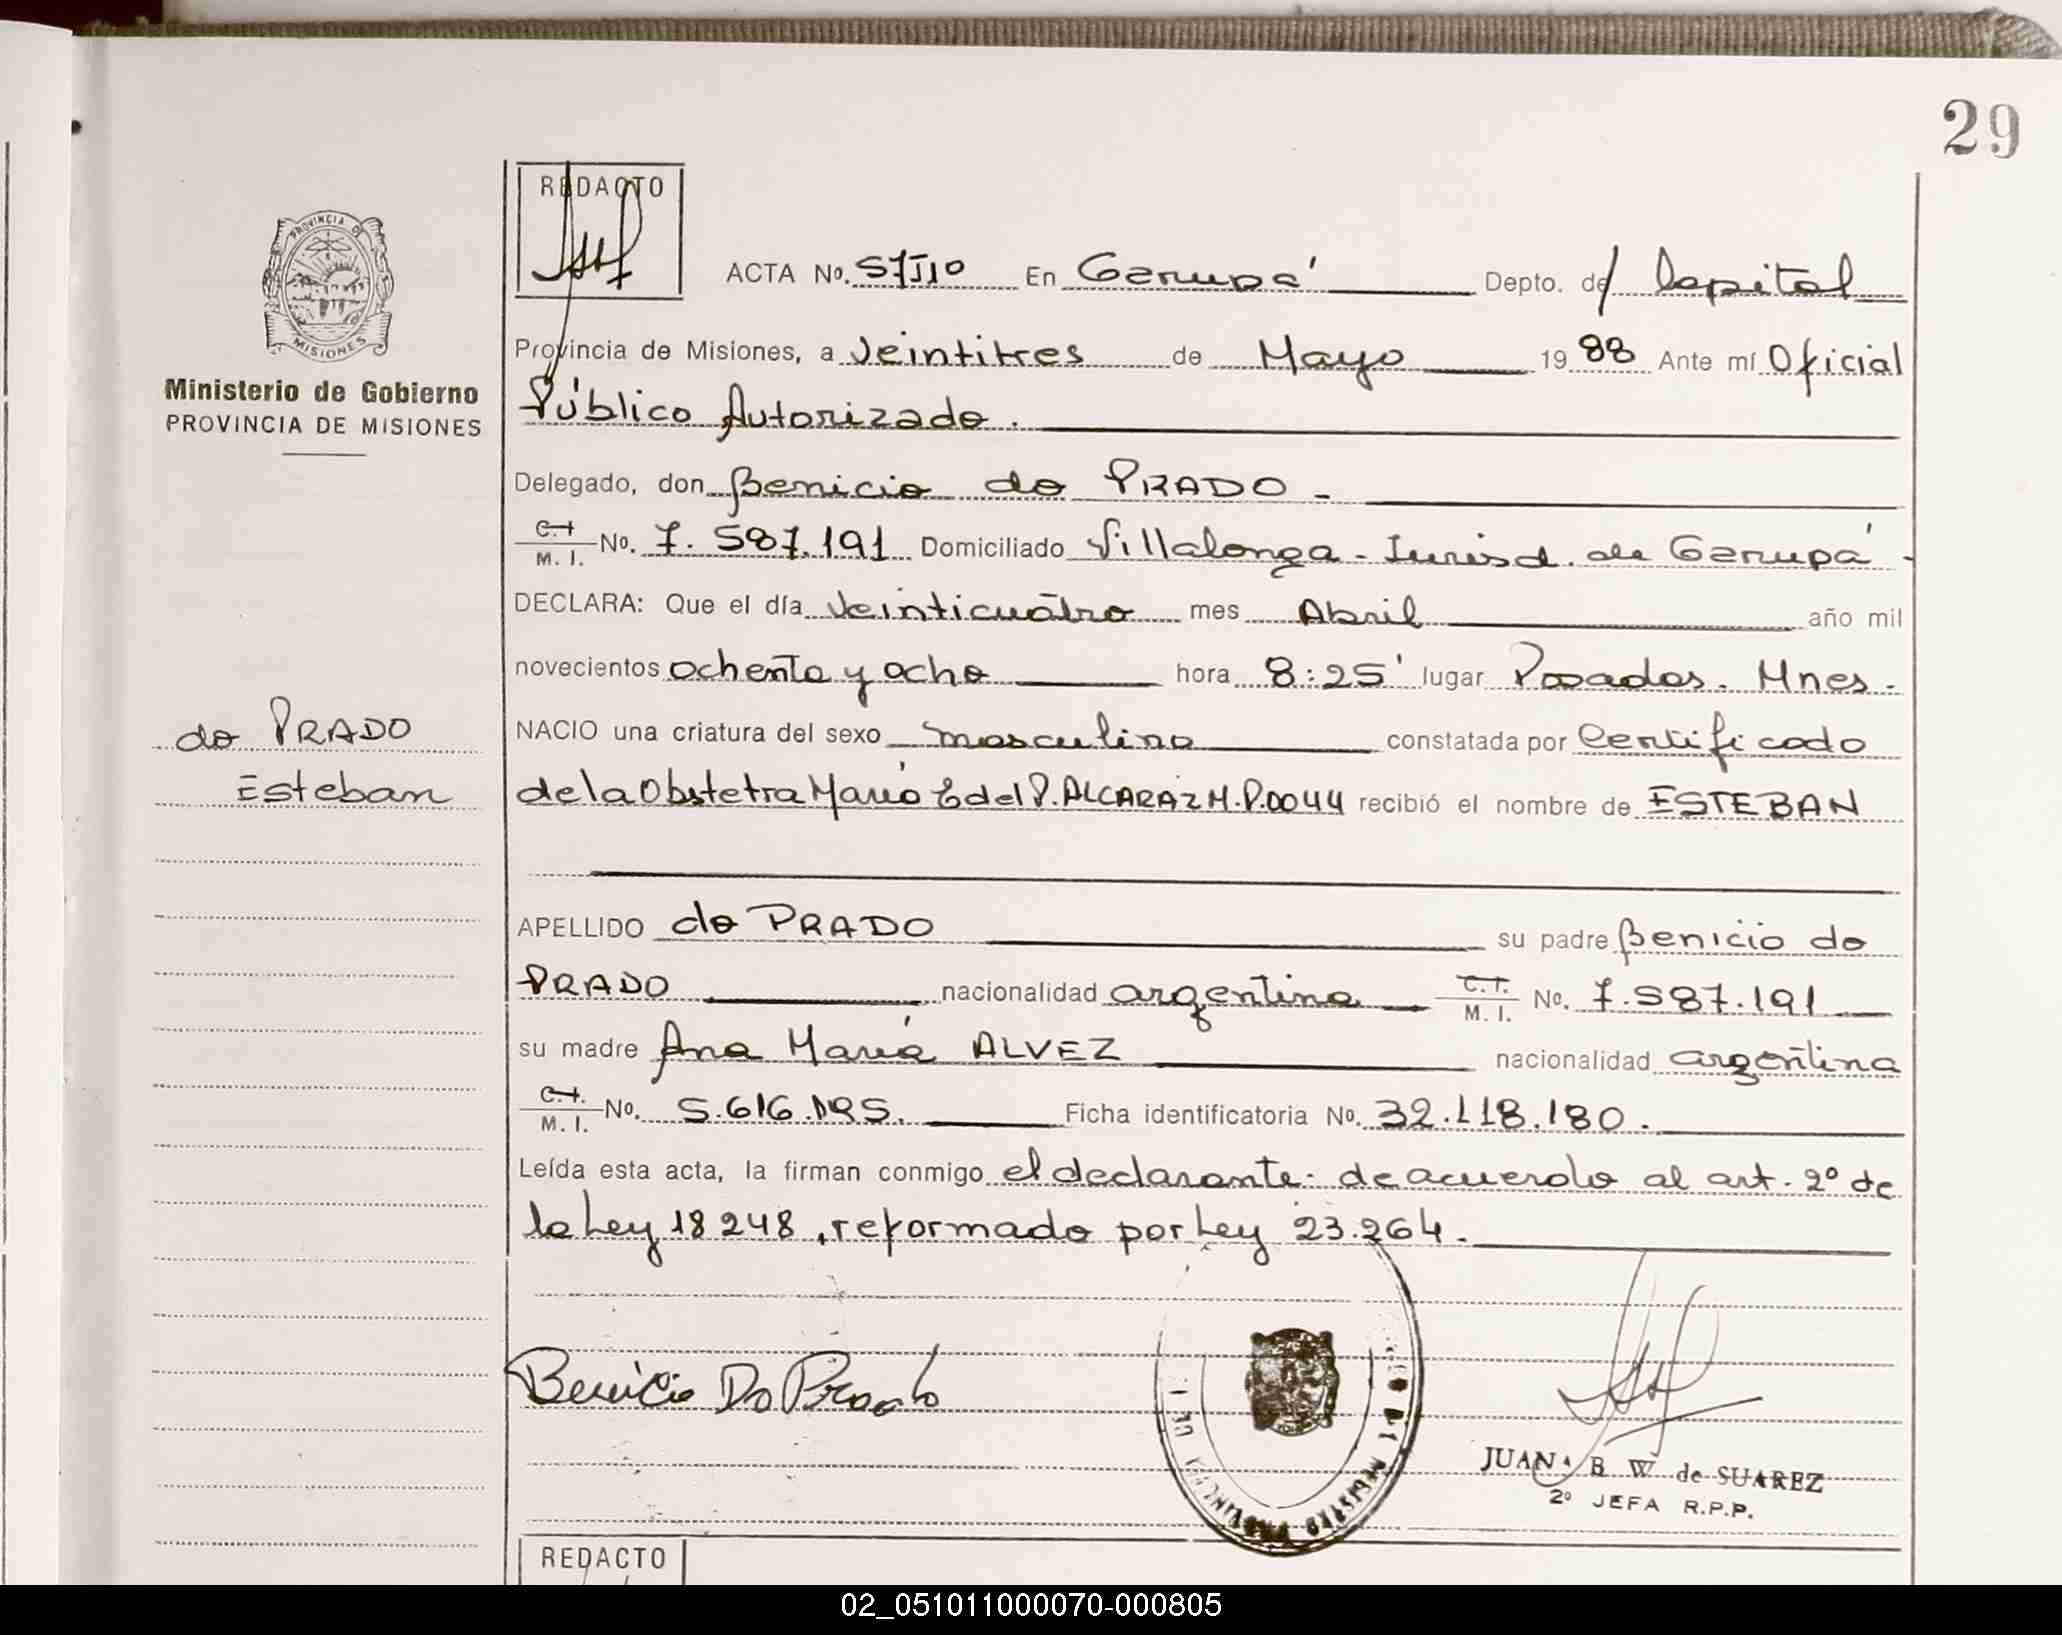 29
REDACTO
ACTA No. 57/T10 En Garupá Depto. de Capital
PROVINCIA DE
MISIONES
Provincia de Misiones, a Veintitres de Mayo 1988 Ante mí Oficial
Ministerio de Gobierno
PROVINCIA DE MISIONES
Público Autorizado.
Delegado, don Benicio do PRADO -
C.I
M. I. No. 7.587.191 Domiciliado Villalonga - Jurisd. de Garupá -
DECLARA: Que el día Veinticuatro mes Abril año mil
novecientos ochenta y ocho hora 8:25' lugar Posadas. Mnes.
do PRADO
Esteban
NACIO una criatura del sexo masculino constatada por Certificado
de la Obstetra María E del P. ALCARAZ M.P.0044 recibió el nombre de ESTEBAN
APELLIDO do PRADO su padre Benicio do
PRADO nacionalidad argentina C.I.
M. I. No. 7.587.191
su madre Ana María ALVEZ nacionalidad argentina
C.I.
M. I. No. 5.616. Ficha identificatoria No. 32.118.180.
Leída esta acta, la firman conmigo el declarante. de acuerdo al art. 2º de
la Ley 18248, reformado por Ley 23.264.
Benicio Do Prado
REGISTRO PROVINCIAL DE L
JUANA B W de SUAREZ
2º JEFA R.P.P.
REDACTO
02_051011000070-000805